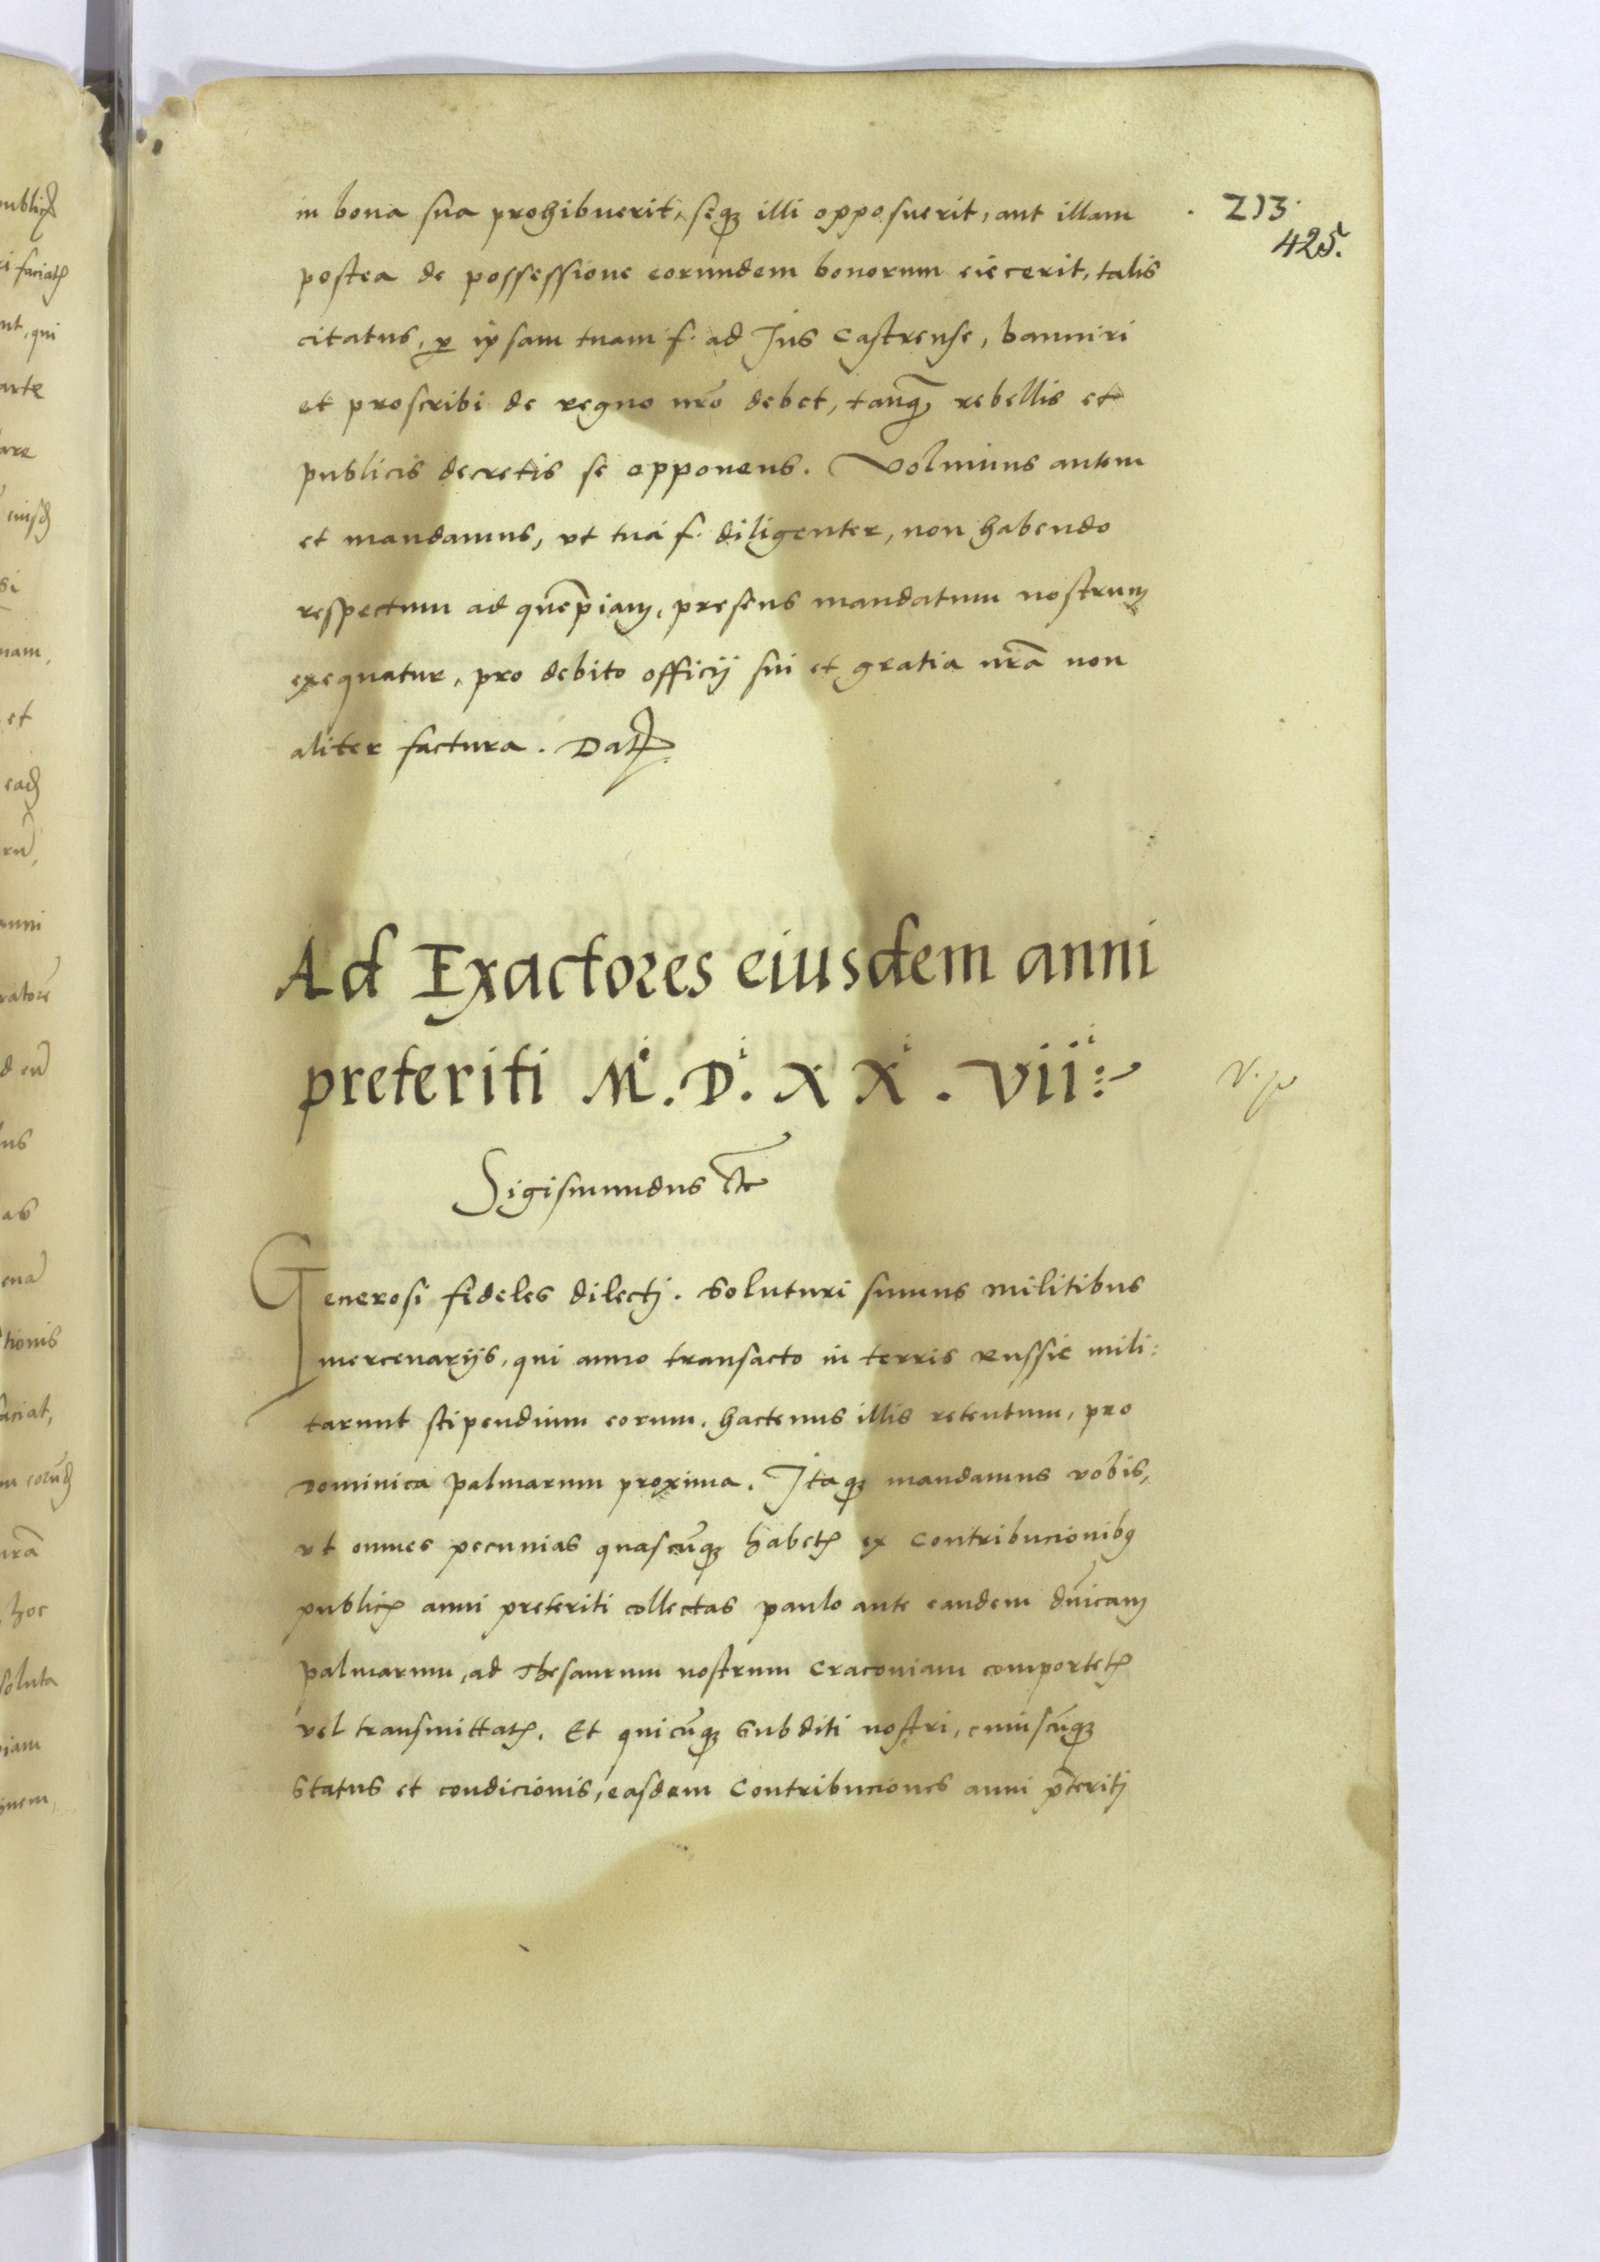 213.
425.
in bona sua prohibuerit, seq&#x0301; illi opposuerit, aut illam
postea de possessione eorundem bonorum eiecerit, talis
citatus, p ipsam tuam f. ad Jus Castrense, banniri
et proscribi de regno nr̃o debet, tanq̃ rebellis et
publicis decretis se opponens. Volumus autem
et mandamus, vt tua f. diligenter, non habendo
respectum ad quẽpiam, presens mandatum nostrum
exequatur, pro debito officij sui et gratia nr̃a non
aliter factura. Dat
Ad Exactores eiusdem anni
preteriti M. D. XX. Vii
Sigismundus etc
Generosi fideles dilectj. Soluturi sumus militibus
mercenarijs, qui anno transacto in terris Russie mili:
tarunt stipendium eorum, hactenus illis retentum, pro
Dominica palmarum proxima. Itaq; mandamus vobis,
vt omnes pecunias quascũq; habetꝭ ex contribucionibꝰ
publicꝭ anni preteriti collectas paulo ante eandem dñicam
palmarum, ad Thesaurum nostrum Cracouiam comportetꝭ
vel transmittatꝭ. Et quicũq; Subditi nostri, cuiuscũq;
Status et condicionis, easdem Contribuciones anni p̃teritj